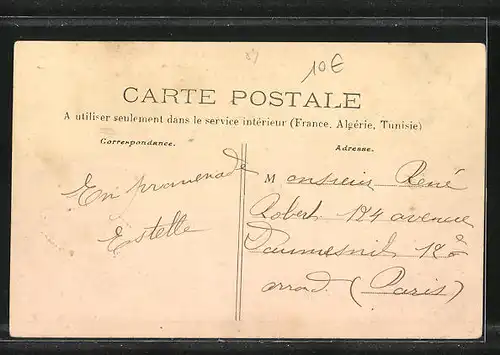 10€
CARTE POSTALE
A utiliser seulement dans le service intérieur (France, Algérie, Tunisie)
Correspondance.
Adresse.
En promenade
Estelle
Monsieur René
Robert 124 avenue
Daumesnil 12è
arrond. (Paris)